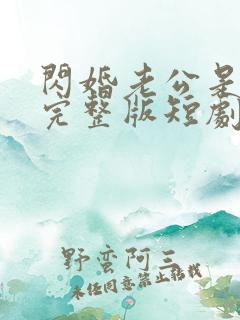 閃婚老公是
完整版短劇
野蛮阿三
未经同意禁止转载